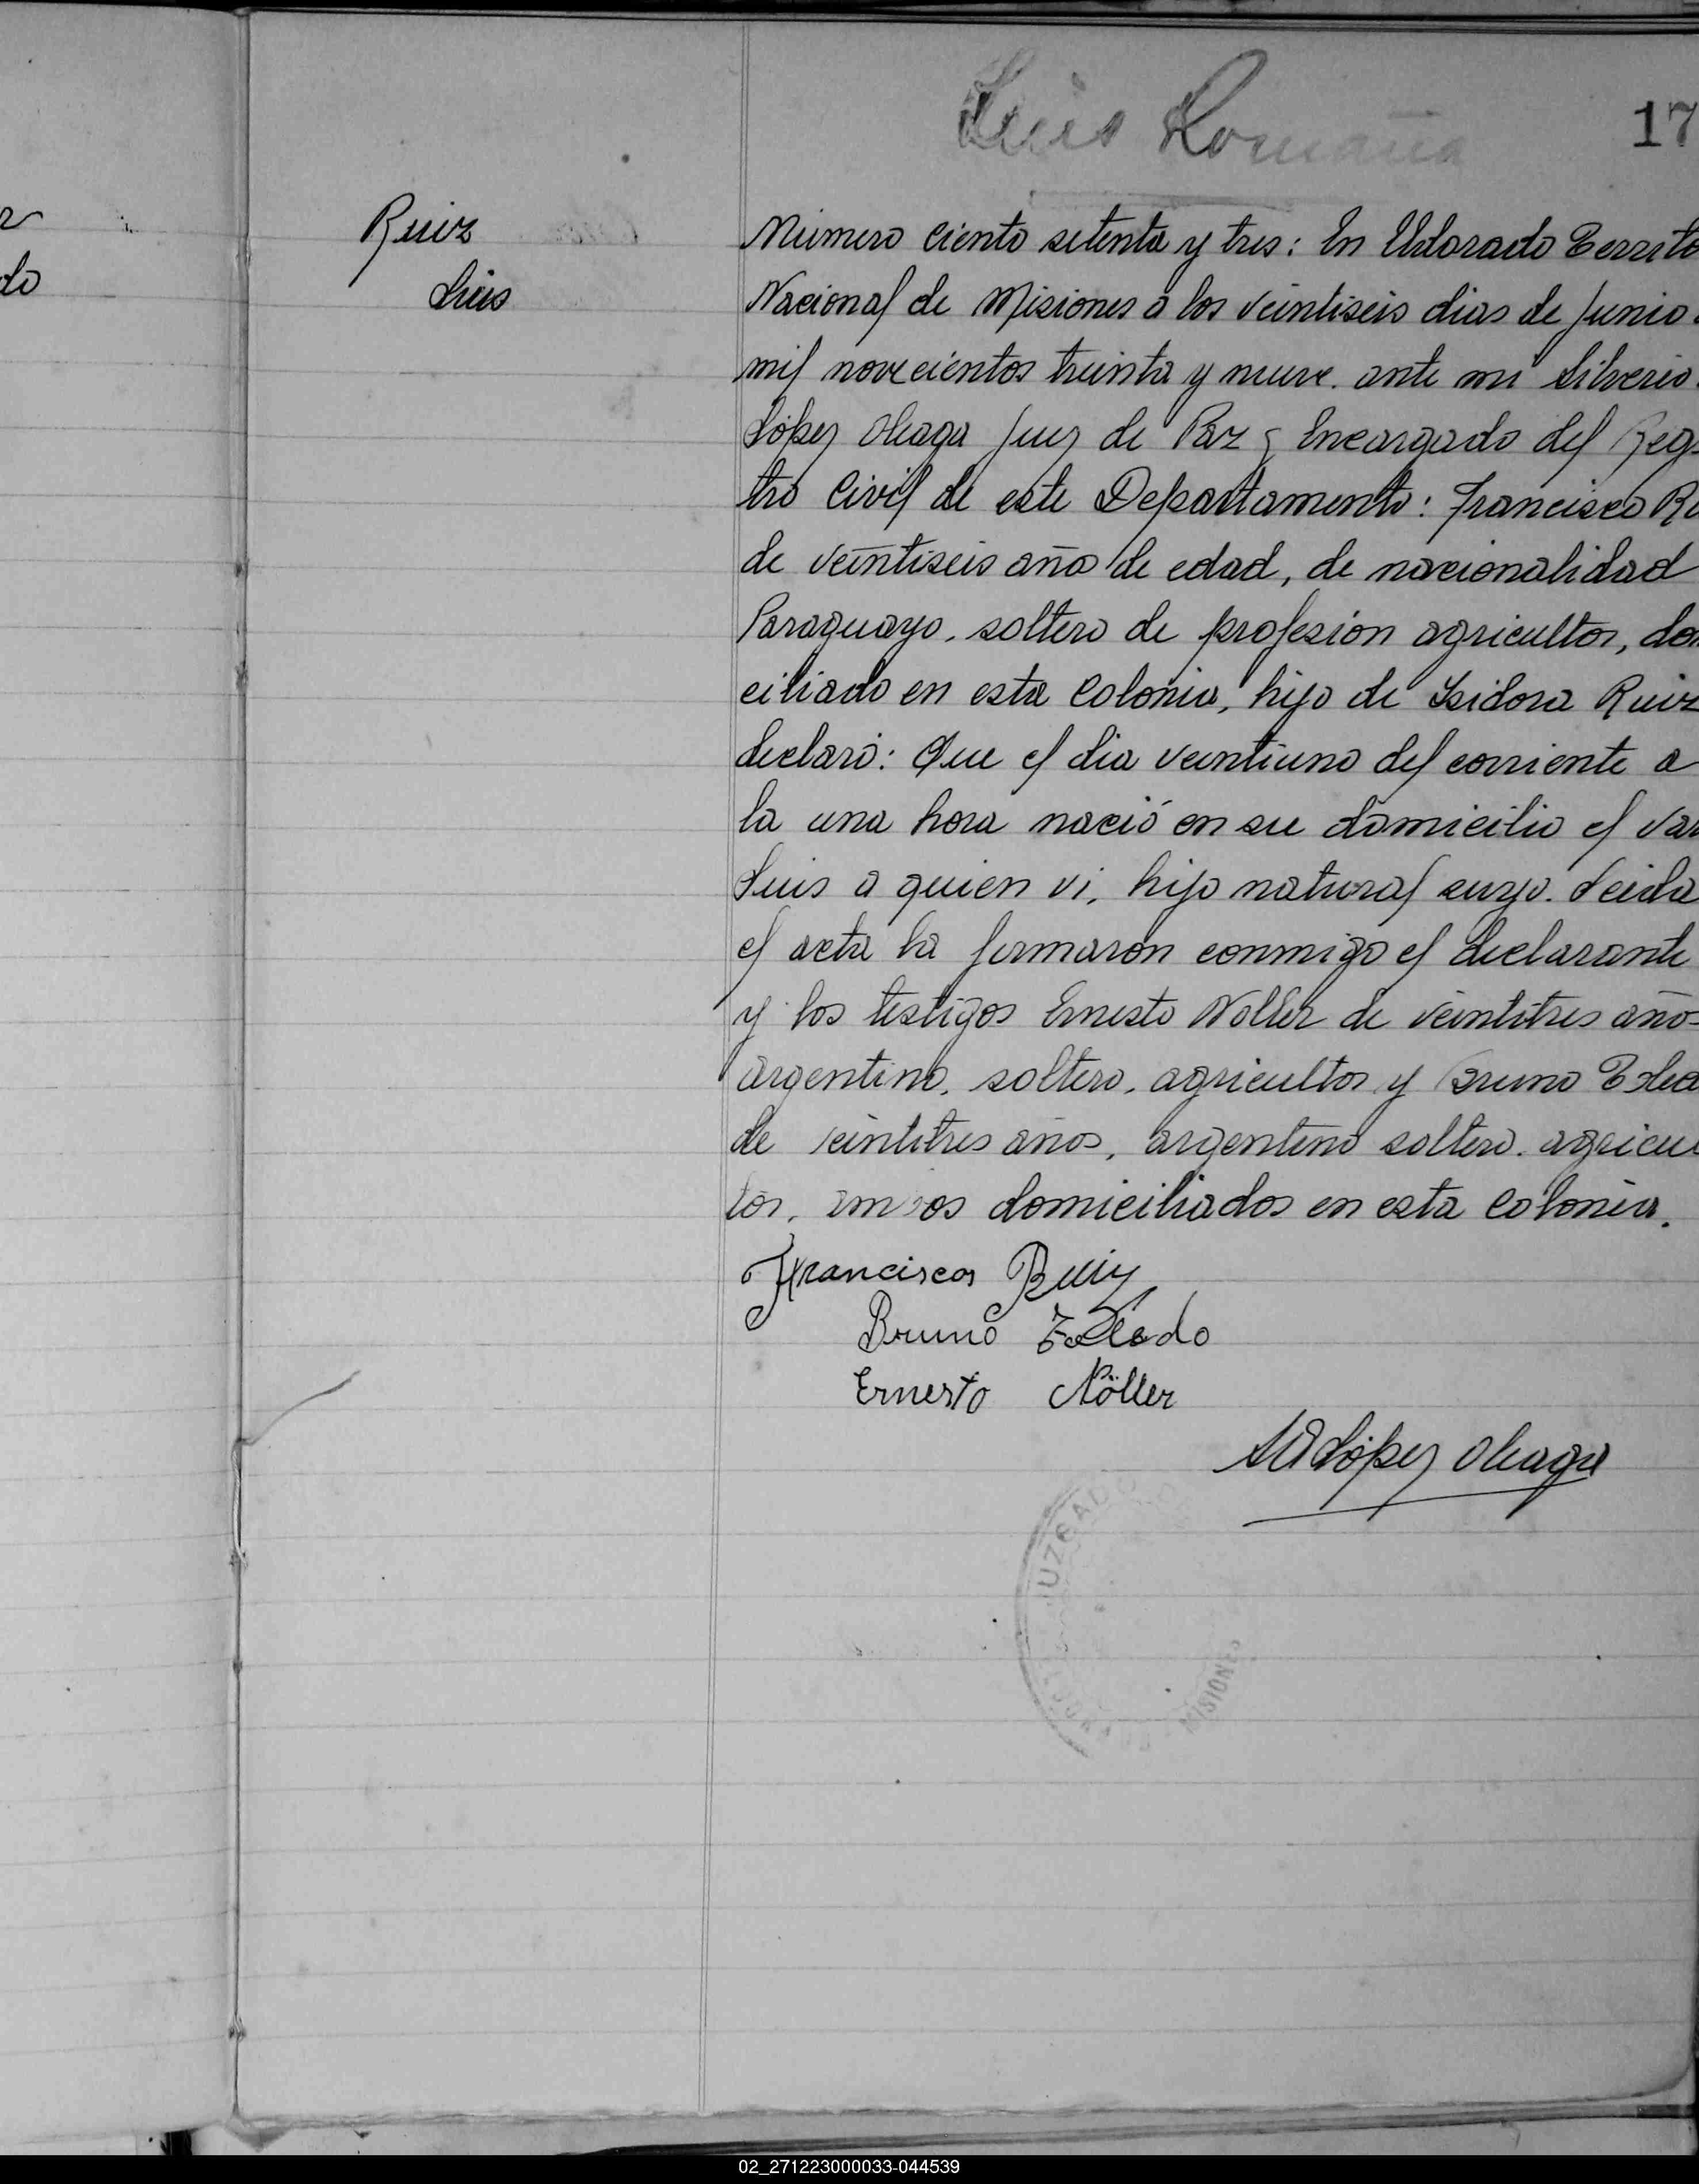 Luis Romaña
17
Ruiz
Luis
r
do
Número ciento setenta y tres: En Eldorado Territo
Nacional de Misiones a los veintiseis dias de Junio
mil novecientos treinta y nueve. ante mi Silverio
López Oleaga Juez de Paz y Encargado del Reg
tro Civil de este Departamento: Francisco Ru
de veintiseis año de edad, de nacionalidad
Paraguayo, soltero de profesion agricultor, dom
ciliado en esta Colonia, hijo de Isidora Ruiz
declaró: Que el dia veintiuno del corriente a
la una hora nació en su domicilio el var
Luis a quien vi, hijo natural suyo. Leida
el acta la firmaron conmigo el declarante
y los testigos Ernesto Noller de veintitres año
argentino, soltero, agricultor y Bruno Toled
de veintitres años, argentino soltero. agricul
tor, ambos domiciliados en esta Colonia.
Francisco Ruiz
Bruno Toledo
Ernesto Nöller
López Oleaga
JUZGADO
MISIONES
02_271223000033-044539